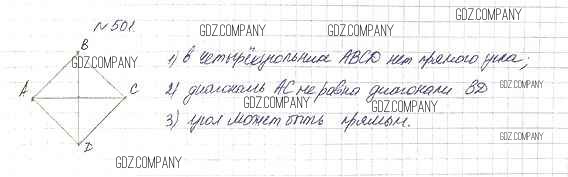 №501.
GDZ.COMPANY
GDZ.COMPANY
GDZ.COMPANY
B
GDZ.COMPANY
1) в четырёхугольник ABCD нет прямого угла;
A
C
2) диагональ AC не равна диагонали BD
GDZ.COMPANY
GDZ.COMPANY
GDZ.COMPANY
3) угол может быть прямым.
D
GDZ.COMPANY
GDZ.COMPANY